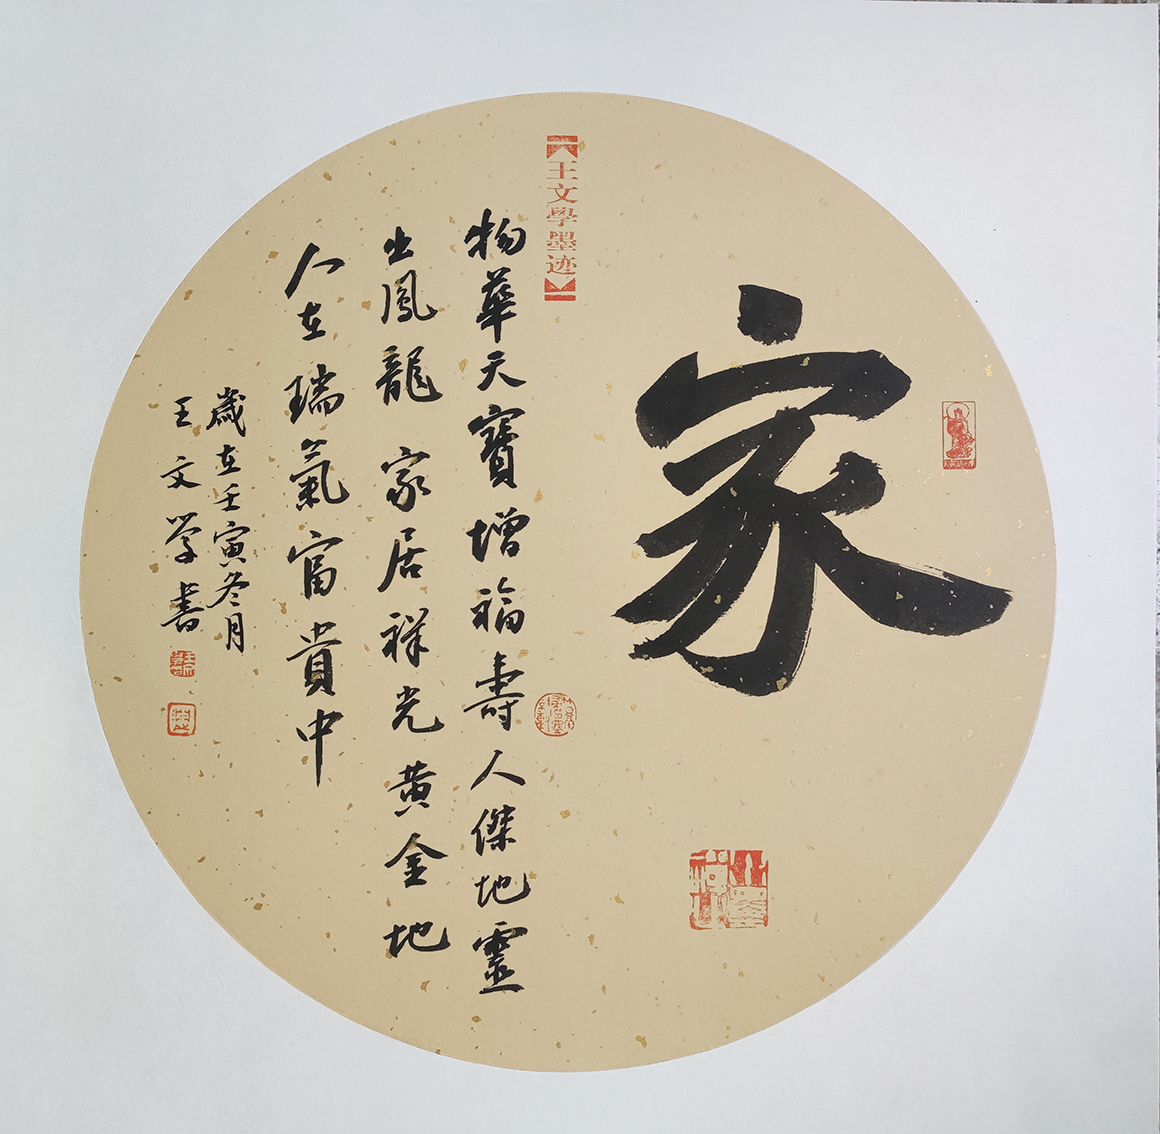 家
王文學墨迹
物華天寶增福壽人傑地靈
出鳳龍家居祥光黄金地
人在瑞氣富貴中
歲在壬寅冬月
王文学書